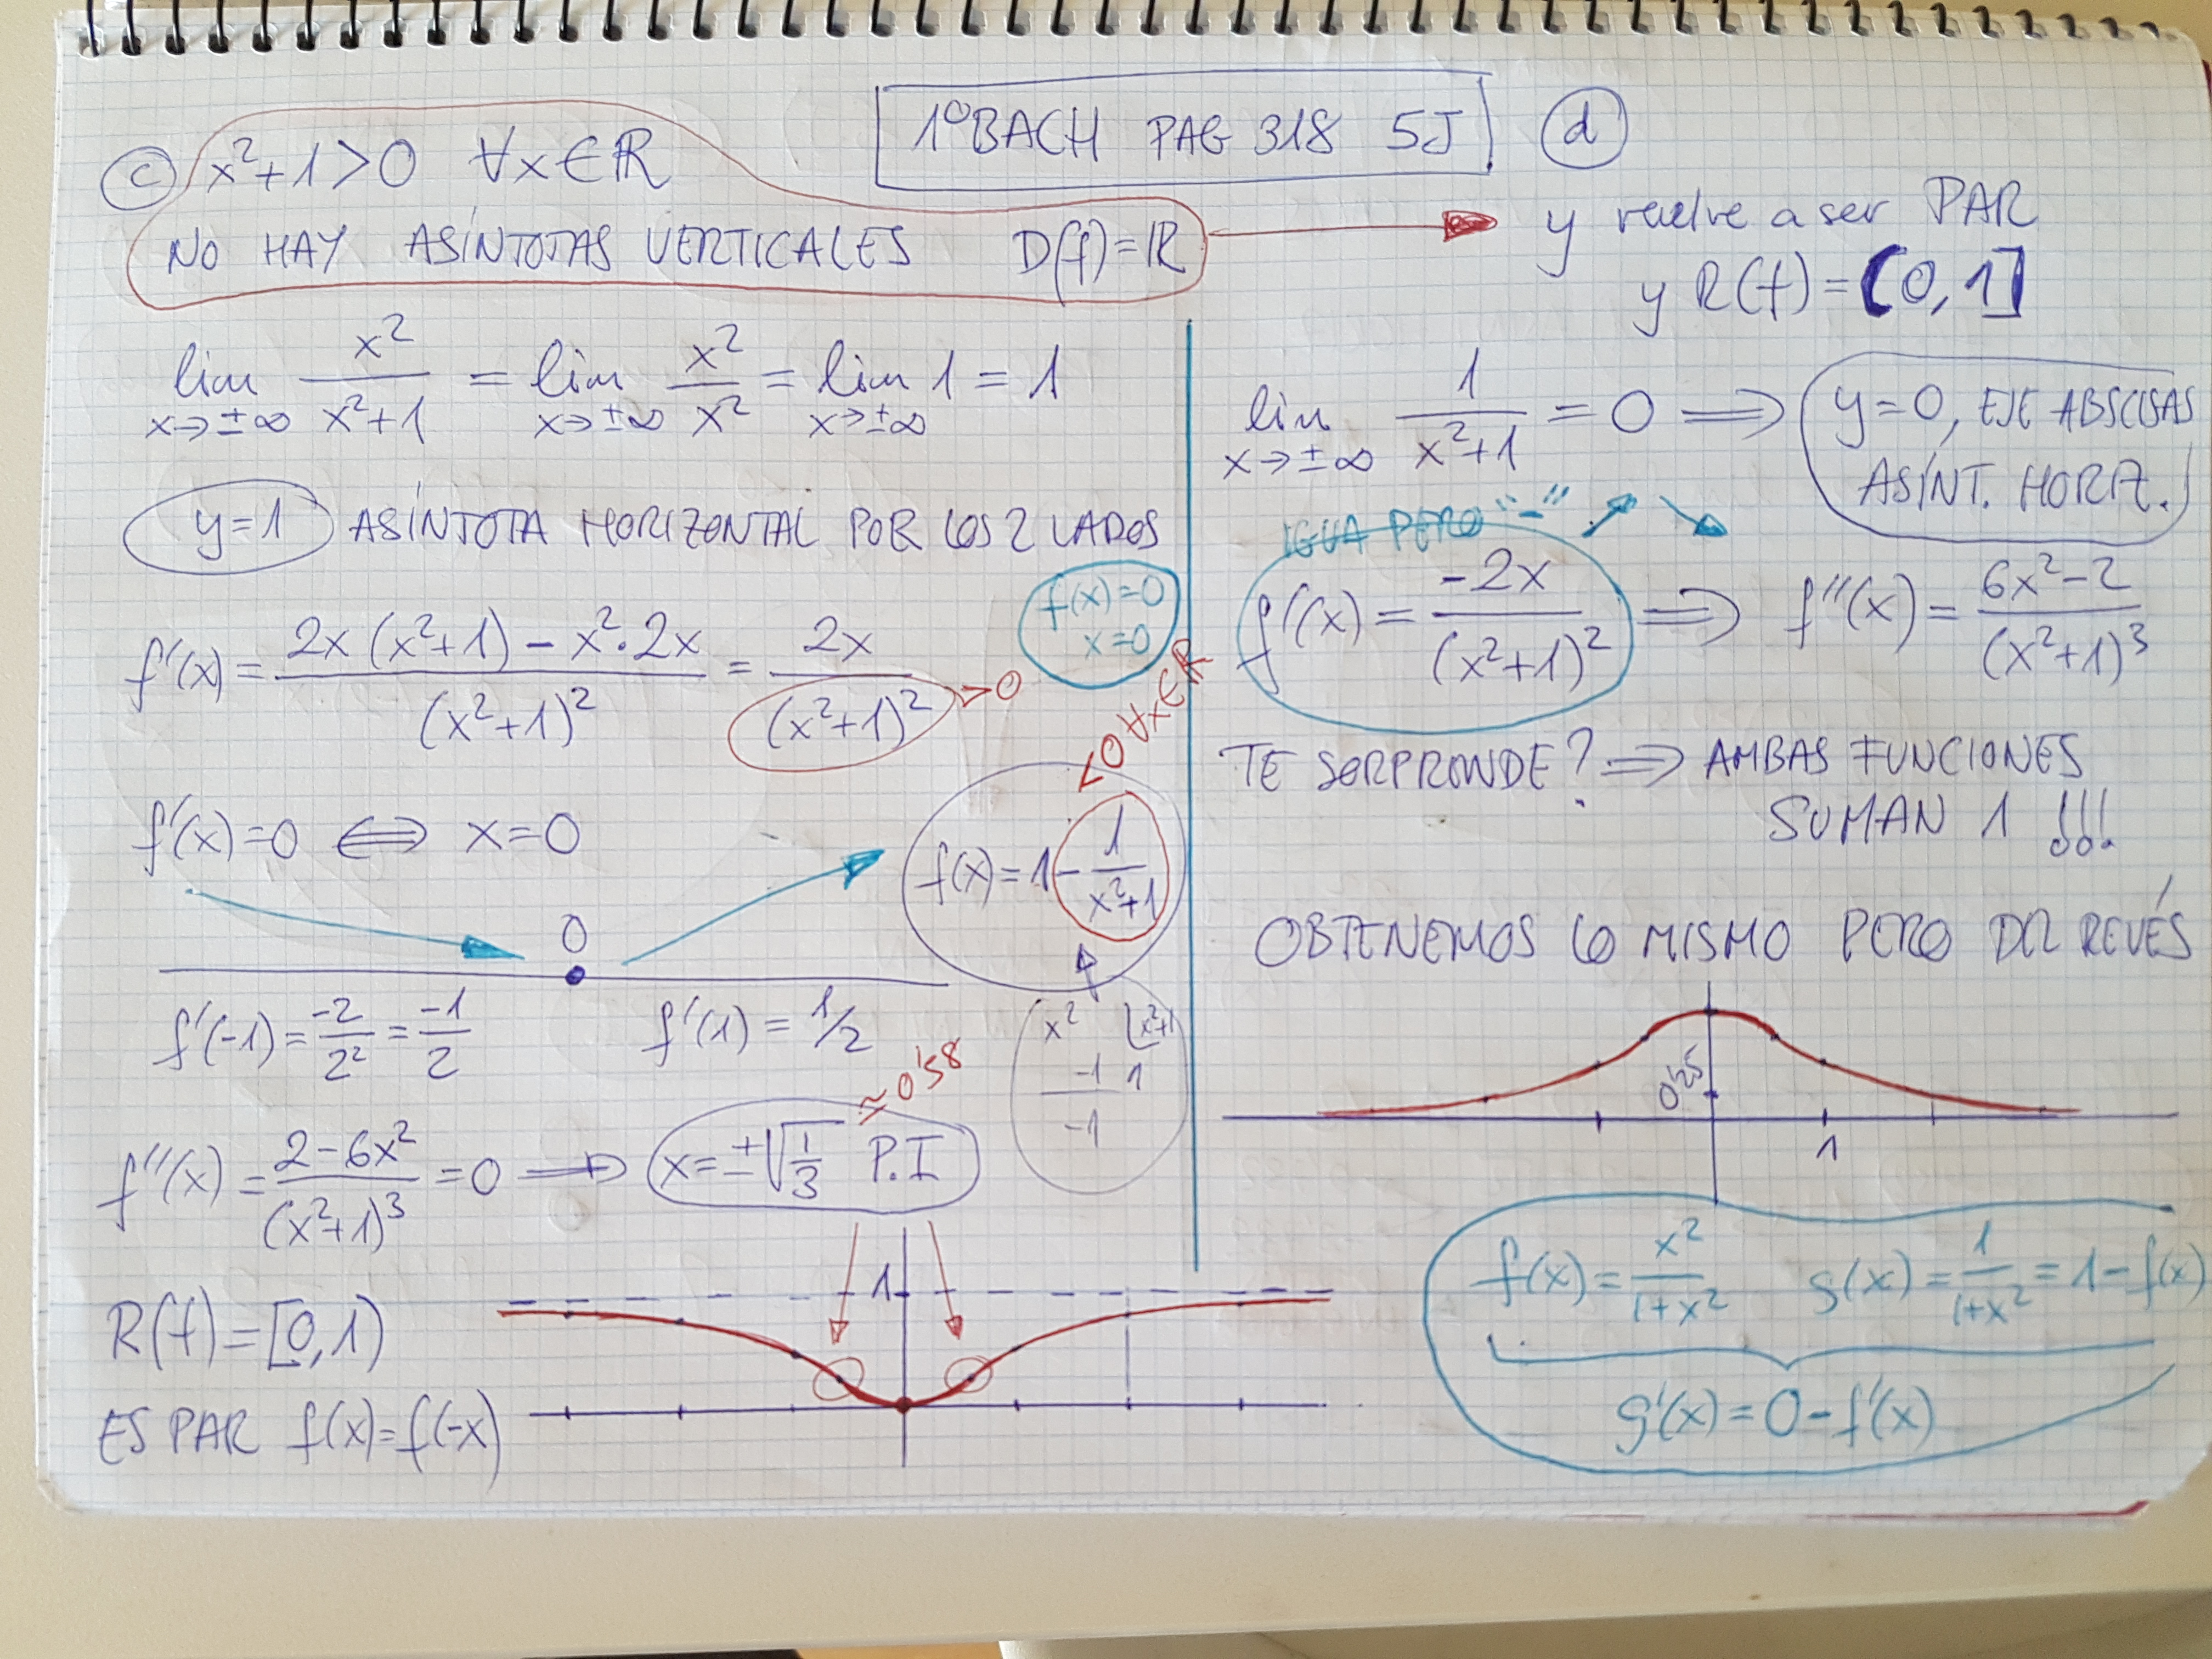 1º BACH PAG 318 5J
c) x²+1>0 ∀x∈ℝ
NO HAY ASÍNTOTAS VERTICALES D(f)=ℝ
lim x→±∞ x²/(x²+1) = lim x→±∞ x²/x² = lim x→±∞ 1 = 1
y=1 ASÍNTOTA HORIZONTAL POR LOS 2 LADOS
f(x)=0
x=0
f'(x) = (2x(x²+1) - x²·2x)/(x²+1)² = 2x/(x²+1)² >0
<0 ∀x∈ℝ
f'(x)=0 ⟺ x=0
f(x)=1-1/(x²+1)
0
f'(-1) = -2/2² = -1/2 f'(1) = 1/2
x² | x²+1
-1 1
-1
≃0'58
f''(x) = (2-6x²)/(x²+1)³ = 0 ⟹ x=±√(1/3) P.I
R(f)=[0,1)
ES PAR f(x)=f(-x)
1
d)
y vuelve a ser PAR
y R(f)=(0,1]
lim x→±∞ 1/(x²+1) = 0 ⟹ y=0, EJE ABSCISAS
ASÍNT. HORIZ.
IGUA PERO "-"
f'(x) = -2x/(x²+1)² ⟹ f''(x) = (6x²-2)/(x²+1)³
TE SORPRENDE? ⟹ AMBAS FUNCIONES
SUMAN 1 !!!
OBTENEMOS LO MISMO PERO DEL REVÉS
0'25
1
f(x) = x²/(1+x²) g(x) = 1/(1+x²) = 1-f(x)
g'(x) = 0-f'(x)